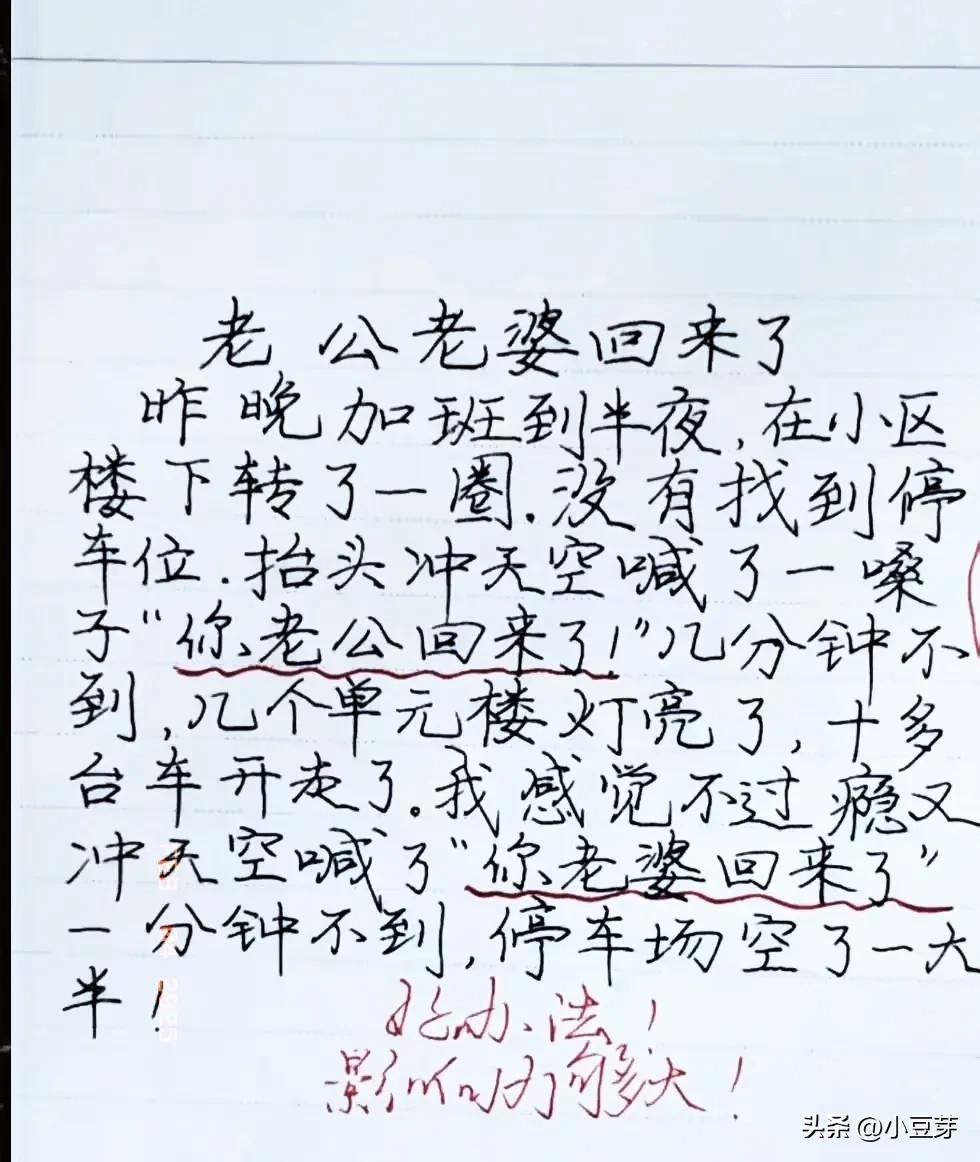 老公老婆回来了
昨晚加班到半夜,在小区
楼下转了一圈.没有找到停
车位.抬头冲天空喊了一嗓
子“你老公回来了!”几分钟不
到,几个单元楼灯亮了,十多
台车开走了。我感觉不过瘾又
冲天空喊了“你老婆回来了”
一分钟不到,停车场空了一大
半!
好办法!
影响力够大!
头条 @小豆芽